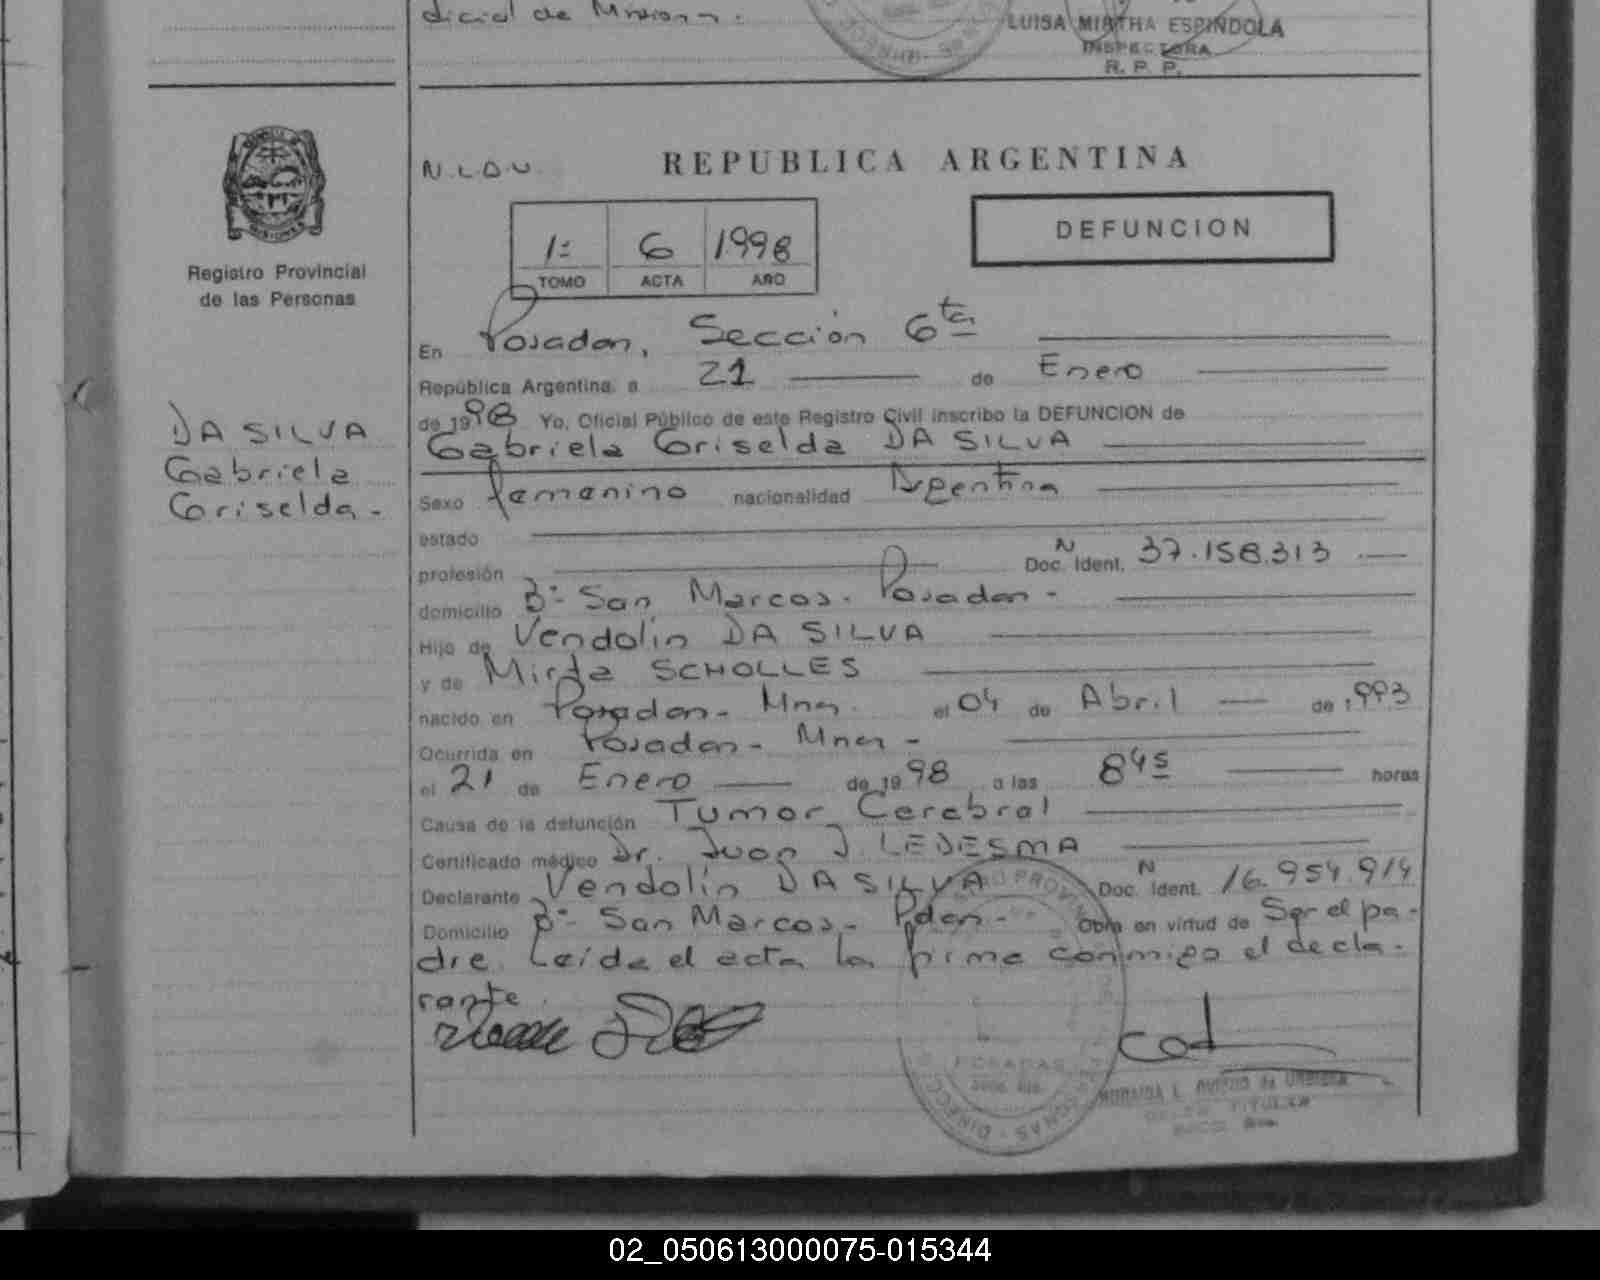 dicial de Misiones.
LUISA MIRTHA ESPINDOLA
INSPECTORA
R. P. P.
MISIONES
Registro Provincial
de las Personas
DA SILVA
Gabriela
Griselda -
N.L.D.U.
REPUBLICA ARGENTINA
DEFUNCION
1º 6 1998
TOMO ACTA AÑO
En Posadas, Sección 6ta
República Argentina a 21 de Enero
de 1998 Yo, Oficial Público de este Registro Civil inscribo la DEFUNCION de
Gabriela Griselda DA SILVA
Sexo femenino nacionalidad Argentina
estado
profesión Doc. Ident. N 37.158.313
domicilio Bº San Marcos. Posadas -
Hijo de Vendolin DA SILVA
y de Mirta SCHOLLES
nacido en Posadas - Mnes. el 04 de Abril de 1993
Ocurrida en Posadas - Mnes -
el 21 de Enero de 1998 a las 8 45 horas
Causa de la defunción Tumor Cerebral
Certificado médico Dr. Juan J. LEDESMA
Declarante Vendolin DA SILVA Doc. Ident. N 16.954.914
Domicilio Bº San Marcos - Pdas - Obra en virtud de Ser el pa-
dre. Leída el acta la firma conmigo el decla-
rante.
POSADAS
TITULAR
02_050613000075-015344